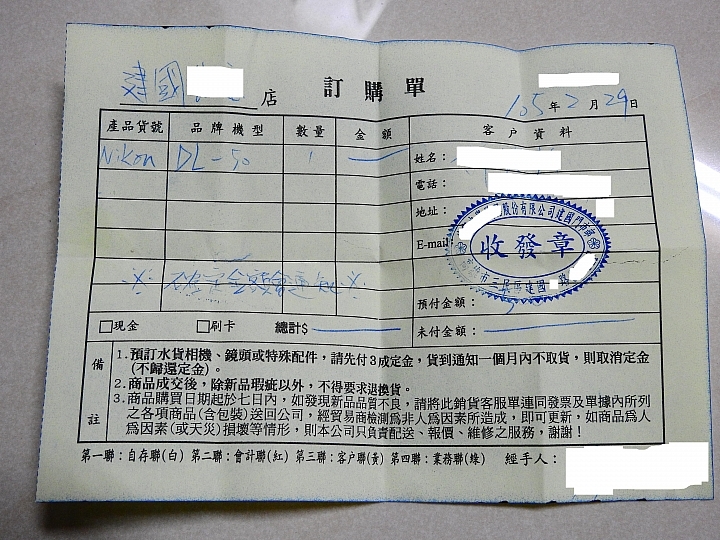 建國 店
訂購單
105年2月29日
產品貨號 品牌機型 數量 金額 客戶資料
Nikon DL-50 1
姓名：
電話：
地址：
E-mail
股份有限公司建國門市部
收發章
市三民區建國 路
確定金額會通知
預付金額：
□現金 □刷卡 總計$
未付金額：
備註
1.預訂水貨相機、鏡頭或特殊配件，請先付3成定金，貨到通知一個月內不取貨，則取消定金
(不歸還定金)。
2.商品成交後，除新品瑕疵以外，不得要求退換貨。
3.商品購買日期起於七日內，如發現新品品質不良，請將此銷貨客服單連同發票及單據內所列
之各項商品(含包裝)送回公司，經貿易商檢測為非人為因素所造成，即可更新，如商品為人
為因素(或天災)損壞等情形，則本公司只負責配送、報價、維修之服務，謝謝！
第一聯：自存聯(白) 第二聯：會計聯(紅) 第三聯：客戶聯(黃) 第四聯：業務聯(綠) 經手人：